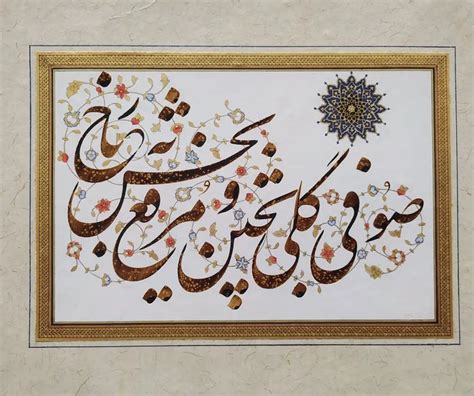 صوفی گلی بچین و مرقع بخار بخش